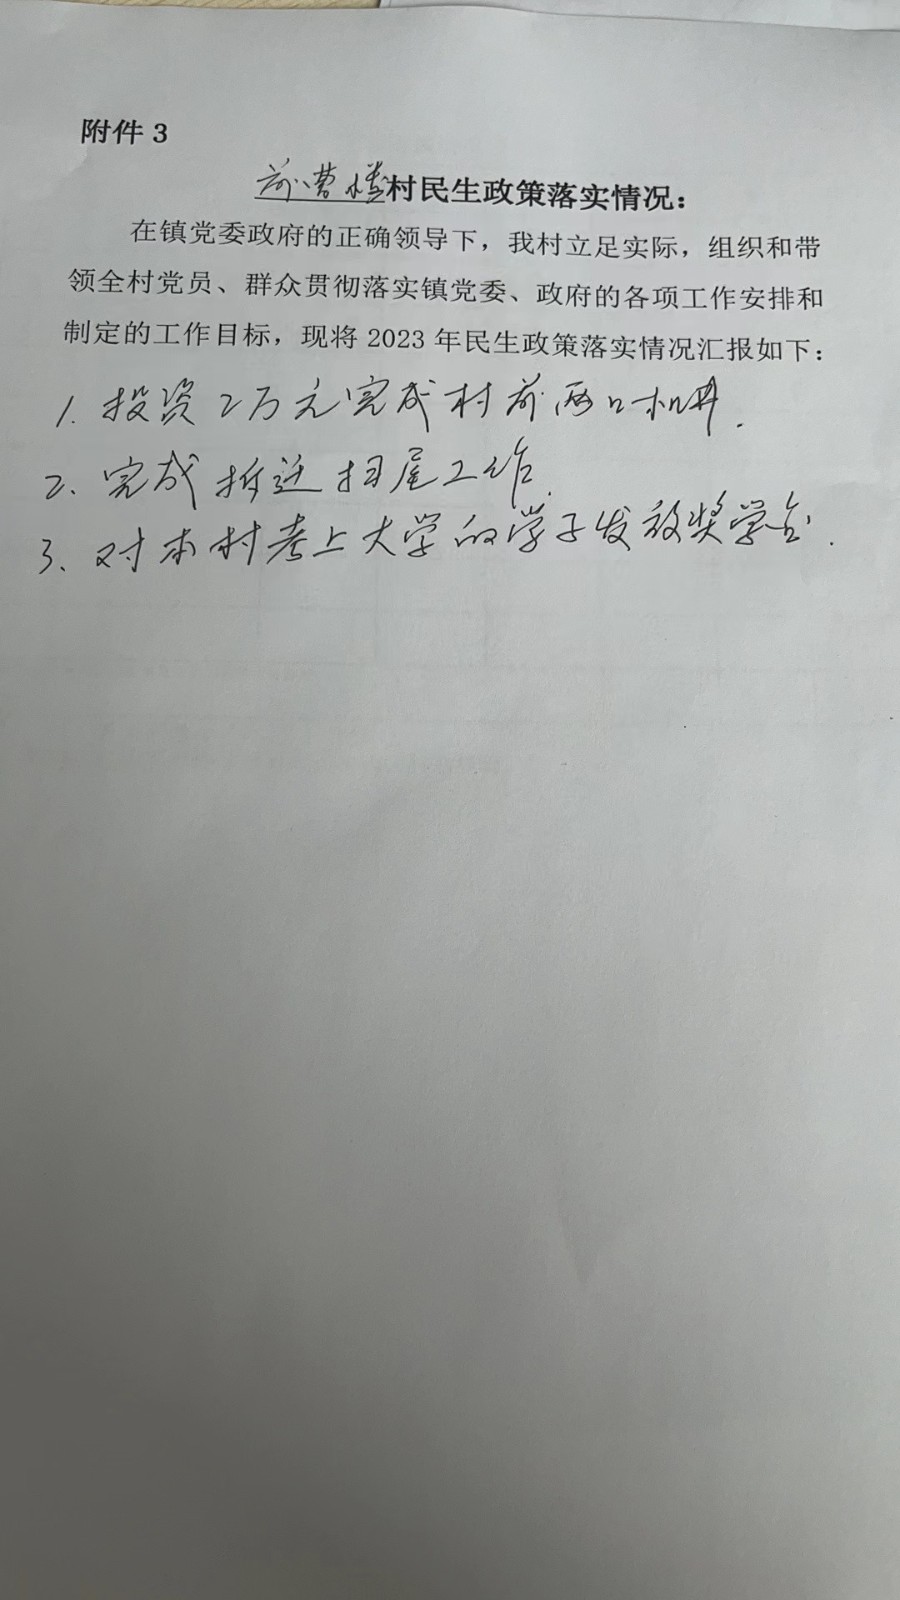 附件 3
前曹楼村民生政策落实情况：
在镇党委政府的正确领导下，我村立足实际，组织和带
领全村党员、群众贯彻落实镇党委、政府的各项工作安排和
制定的工作目标，现将 2023 年民生政策落实情况汇报如下：
1. 投资2万元完成村前两口机井.
2、完成拆迁扫尾工作.
3、对本村考上大学的学子发放奖学金.